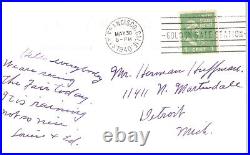 SAN FRANCISCO, CALIF.
MAY 30
6-PM
1940
Hello everybody
We are seeing
the Fair today.
It is raining
not so nice
Louis & Ed.
Mr. Herman Huffman
11411 N. Martindale
Detroit
Mich.